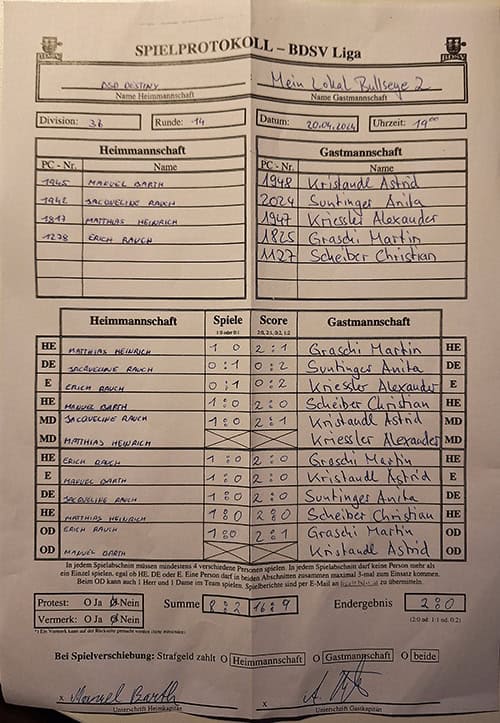 SPIELPROTOKOLL – BDSV Liga
DSD DESTINY Mein Lokal Bullseye 2
Name Heimmannschaft Name Gastmannschaft
Division: 3b Runde: 14 Datum: 20.04.2024 Uhrzeit: 19 00
Heimmannschaft Gastmannschaft
PC - Nr. Name PC - Nr. Name
1945 MANUEL BARTH 1948 Kristandl Astrid
1942 JACQUELINE RAUCH 2024 Suntinger Anita
1817 MATTHIAS HEINRICH 1947 Kriessler Alexander
1278 ERICH RAUCH 1825 Graschi Martin
1127 Scheiber Christian
Heimmannschaft Spiele Score Gastmannschaft
1:0 oder 0:1 2:0, 2:1, 0:2, 1:2
HE MATTHIAS HEINRICH 1 0 2 : 1 Graschi Martin HE
DE JACQUELINE RAUCH 0 : 1 0 : 2 Suntinger Anita DE
E ERICH RAUCH 0 : 1 0 : 2 Kriessler Alexander E
HE MANUEL BARTH 1 : 0 2 : 0 Scheiber Christian HE
MD JACQUELINE RAUCH 1 : 0 2 : 1 Kristandl Astrid MD
MD MATTHIAS HEINRICH Kriessler Alexander MD
HE ERICH RAUCH 1 : 0 2 : 0 Graschi Martin HE
E MANUEL BARTH 1 : 0 2 : 0 Kristandl Astrid E
DE JACQUELINE RAUCH 1 : 0 2 : 0 Suntinger Anita DE
HE MATTHIAS HEINRICH 1 : 0 2 : 0 Scheiber Christian HE
OD ERICH RAUCH 1 : 0 2 : 1 Graschi Martin OD
OD MANUEL BARTH Kristandl Astrid OD
In jedem Spielabschnitt müssen mindestens 4 verschiedene Personen spielen. In jedem Spielabschnitt darf keine Person mehr als
ein Einzel spielen, egal ob HE, DE oder E. Eine Person darf in beiden Abschnitten zusammen maximal 3-mal zum Einsatz kommen.
Beim OD kann auch 1 Herr und 1 Dame im Team spielen. Spielberichte sind per E-Mail an zu übermitteln.
Protest: O Ja O Nein Summe 8 : 2 16 : 9 Endergebnis 2 : 0
Vermerk: O Ja O Nein (2:0 od. 1:1 od. 0:2)
*) Ein Vermerk kann auf der Rückseite gemacht werden
Bei Spielverschiebung: Strafgeld zahlt O Heimmannschaft O Gastmannschaft O beide
x Manuel Barth x
Unterschrift Heimkapitän Unterschrift Gastkapitän